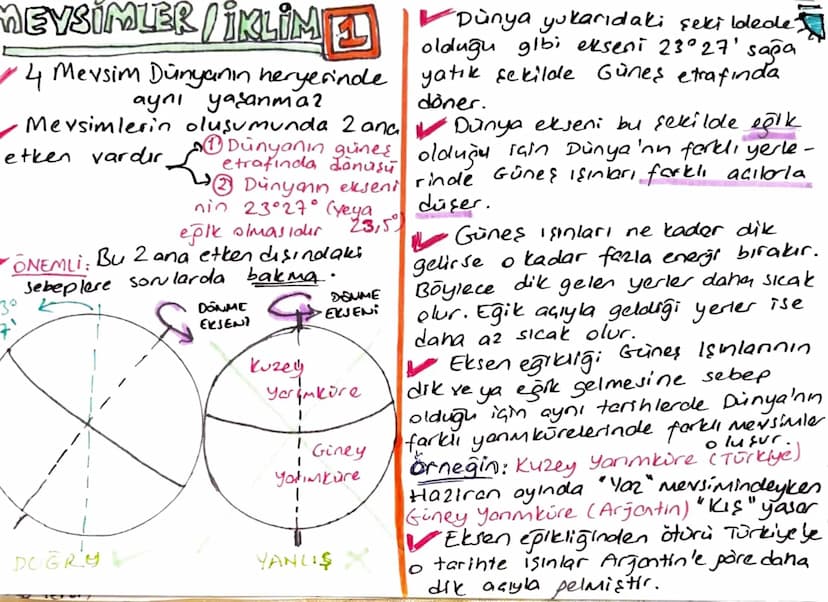 MEVSİMLER / İKLİM 1
4 Mevsim Dünyanın heryerinde
aynı yaşanmaz
Mevsimlerin oluşumunda 2 ana
etken vardır
① Dünyanın güneş
etrafında dönüşü
② Dünyanın ekseni
nin 23°27° (veya
23,5°)
eğik olmasıdır
ÖNEMLİ: Bu 2 ana etken dışındaki
sebeplere sorularda bakma.
DÖNME
EKSENİ
DÖNME
EKSENİ
Kuzey
Yarımküre
Güney
Yarımküre
DOĞRY
YANLIŞ
Dünya yukarıdaki şekildede
olduğu gibi ekseni 23°27' sağa
yatık şekilde Güneş etrafında
döner.
Dünya ekseni bu şekilde eğik
olduğu için Dünya'nın farklı yerle-
rinde Güneş ışınları farklı açılarla
düşer.
Güneş ışınları ne kadar dik
gelirse o kadar fazla enerji bırakır.
Böylece dik gelen yerler daha sıcak
olur. Eğik açıyla geldiği yerler ise
daha az sıcak olur.
Eksen eğikliği Güneş Işınlarının
dik ve ya eğik gelmesine sebep
olduğu için aynı tarihlerde Dünya'nın
farklı yarımkürelerinde farklı mevsimler
oluşur.
Örneğin: Kuzey Yarımküre (Türkiye)
Haziran ayında "Yaz" mevsimindeyken
Güney Yarımküre (Arjantin) "Kış" yaşar
Eksen eğikliğinden ötürü Türkiye'ye
o tarihte ışınlar Arjantin'e göre daha
dik açıyla gelmiştir.